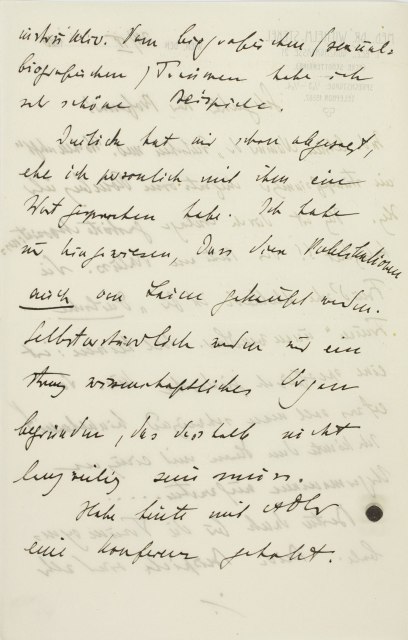 instruktiv. Vom biografischen (sexual-
biografischen) Träumen habe ich
sehr schöne Beispiele.
hat mir schon abgesagt,
ehe ich persönlich mit ihm ein
Wort gesprochen habe. Ich habe
nur hingewiesen, dass diese Publikationen
auch von Laien gekauft werden.
Selbstverständlich werden wir ein
streng wissenschaftliches Organ
begründen, das deshalb nicht
langweilig sein muss.
Habe heute mit Adler
eine Konferenz gehabt.